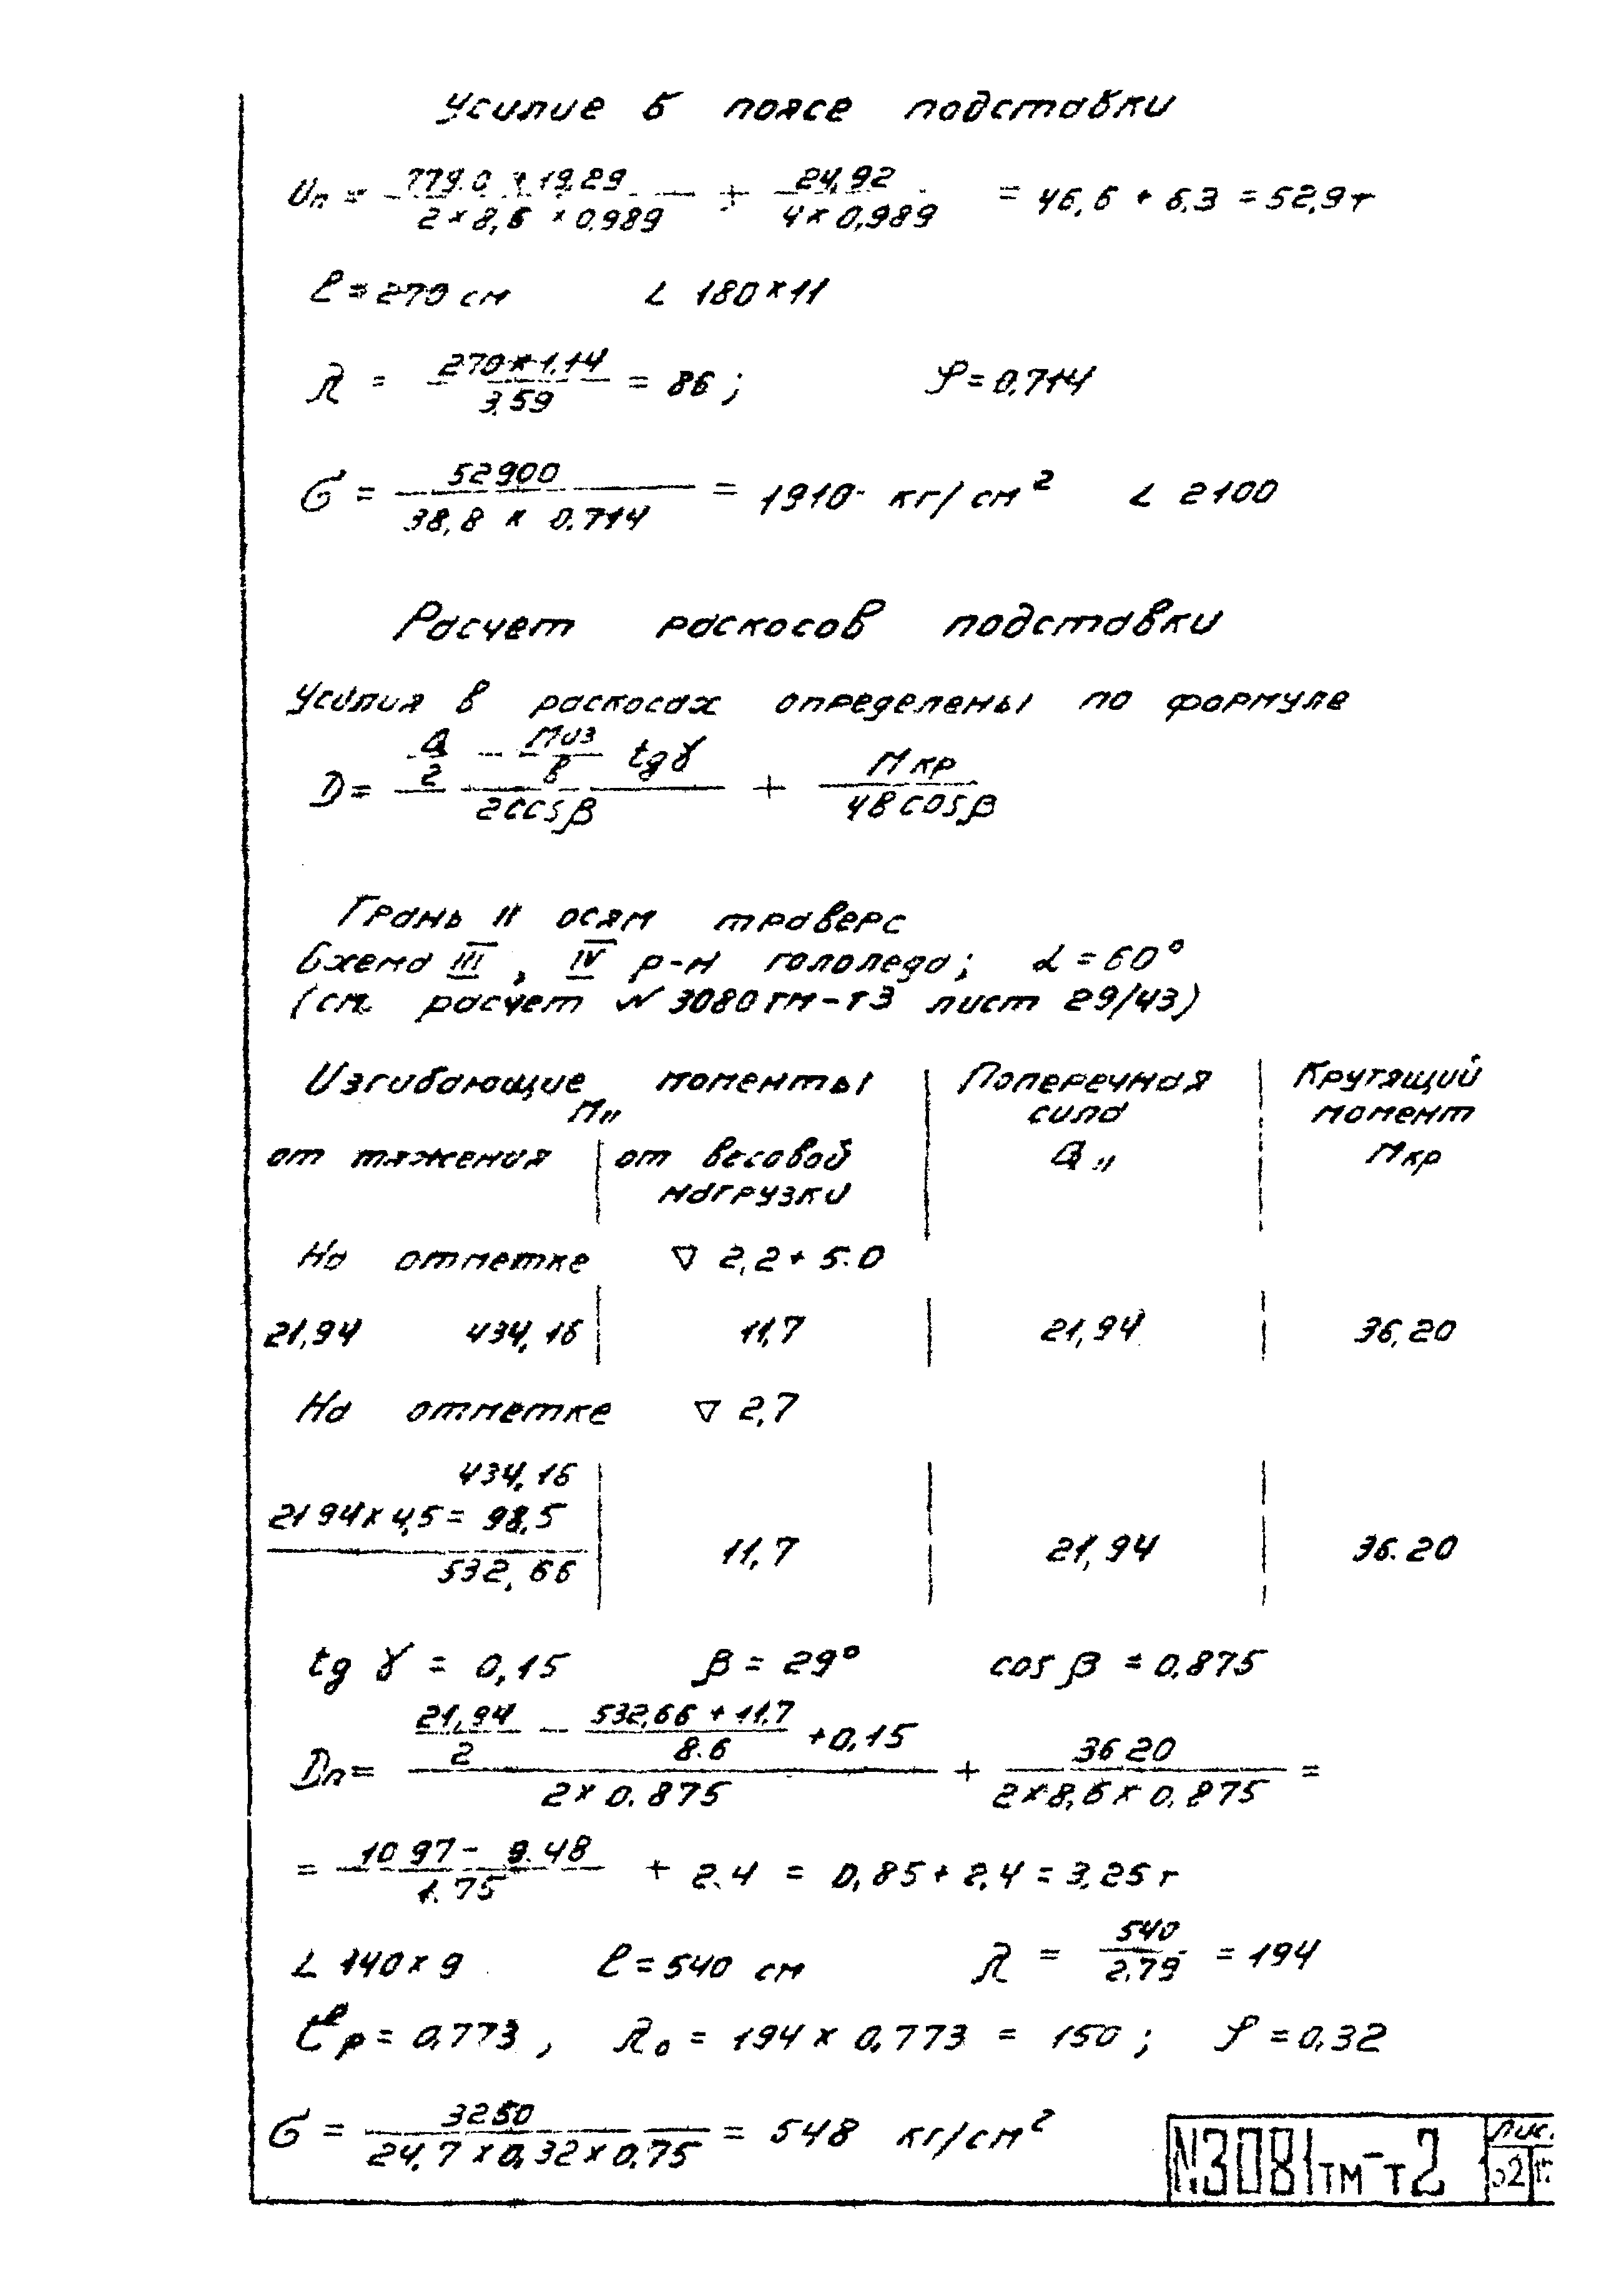 Усилие в поясе подставки
Uп = (779.0 + 19,29) / (2 × 8,6 × 0,989) + 24,92 / (4 × 0,989) = 46,6 + 6.3 = 52,9 т
ℓ = 270 см L 180×11
λ = (270 × 1,14) / 3,59 = 86 ; φ = 0,714
σ = 52900 / (38,8 × 0.714) = 1910 кг/см² < 2100
Расчет раскосов подставки
Усилия в раскосах определены по формуле
D = (Q/2 - Миз/в tgγ) / (2cosβ) + Мкр / (4в cosβ)
Грань II осям траверс
Схема III, IV р-н гололеда; α = 60°
(см. расчет N 3080тм-т3 лист 29/43)
Изгибающие моменты | Поперечная | Крутящий
М" сила момент
от тяжения | от весовой Q" Мкр
нагрузки
На отметке ∇ 2,2 + 5.0
21,94 434,16 | 11,7 | 21,94 | 36,20
На отметке ∇ 2,7
434,16
21 94 × 4,5 = 98,5
532,66 | 11,7 | 21,94 | 36.20
tg γ = 0,15 β = 29° cos β = 0.875
Dп = (21,94/2 - (532,66 + 11,7)/8.6 +0,15) / (2 × 0.875) + 36 20 / (2×8,6× 0.875) =
= (10 97 - 9.48) / 1.75 + 2.4 = 0,85 + 2,4 = 3,25 т
L 140 × 9 ℓ = 540 см λ = 540 / 2,79 = 194
р = 0,773 , λ₀ = 194 × 0,773 = 150 ; φ = 0,32
σ = 3250 / (24,7 × 0,32 × 0,75) = 548 кг/см²
N3081тм-т2
Лис.